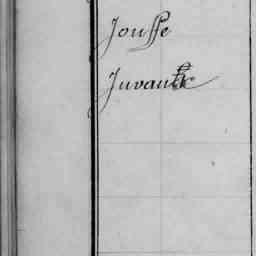 Jousse
Juvault